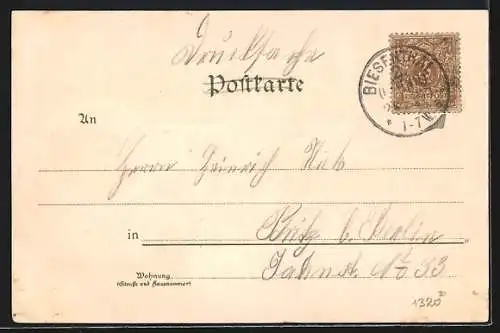 Drucksache
Postkarte
BIESENTHAL
* 1-7N
An
Herrn Heinrich
in Britz b. Berlin
Jahnstr. No 33
Wohnung
(Straße und Hausnummer)
1320